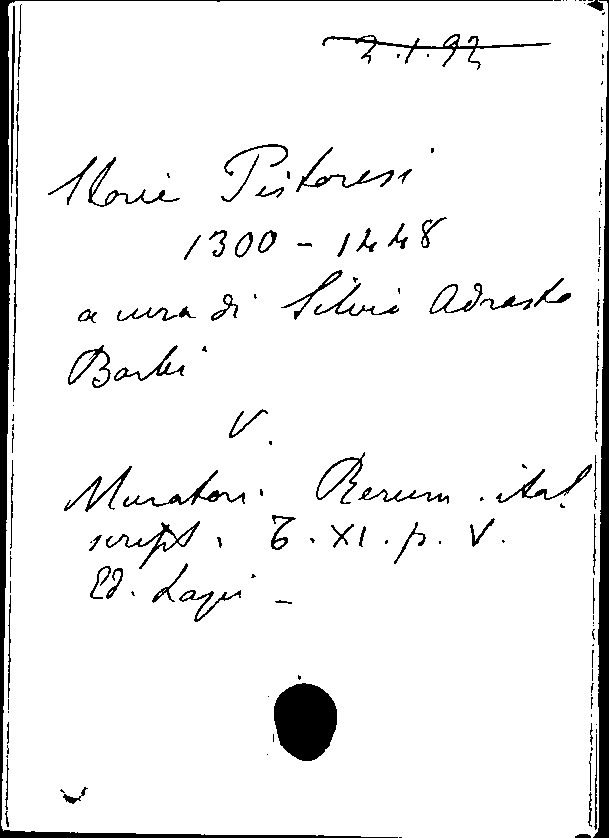 2.1.92
Storie Pistoresi
1300 - 1448
a cura di Silvio Adrasto
Barbi
V.
Muratori. Rerum. ital.
script. T. XI. p. V.
Ed. Lapi -